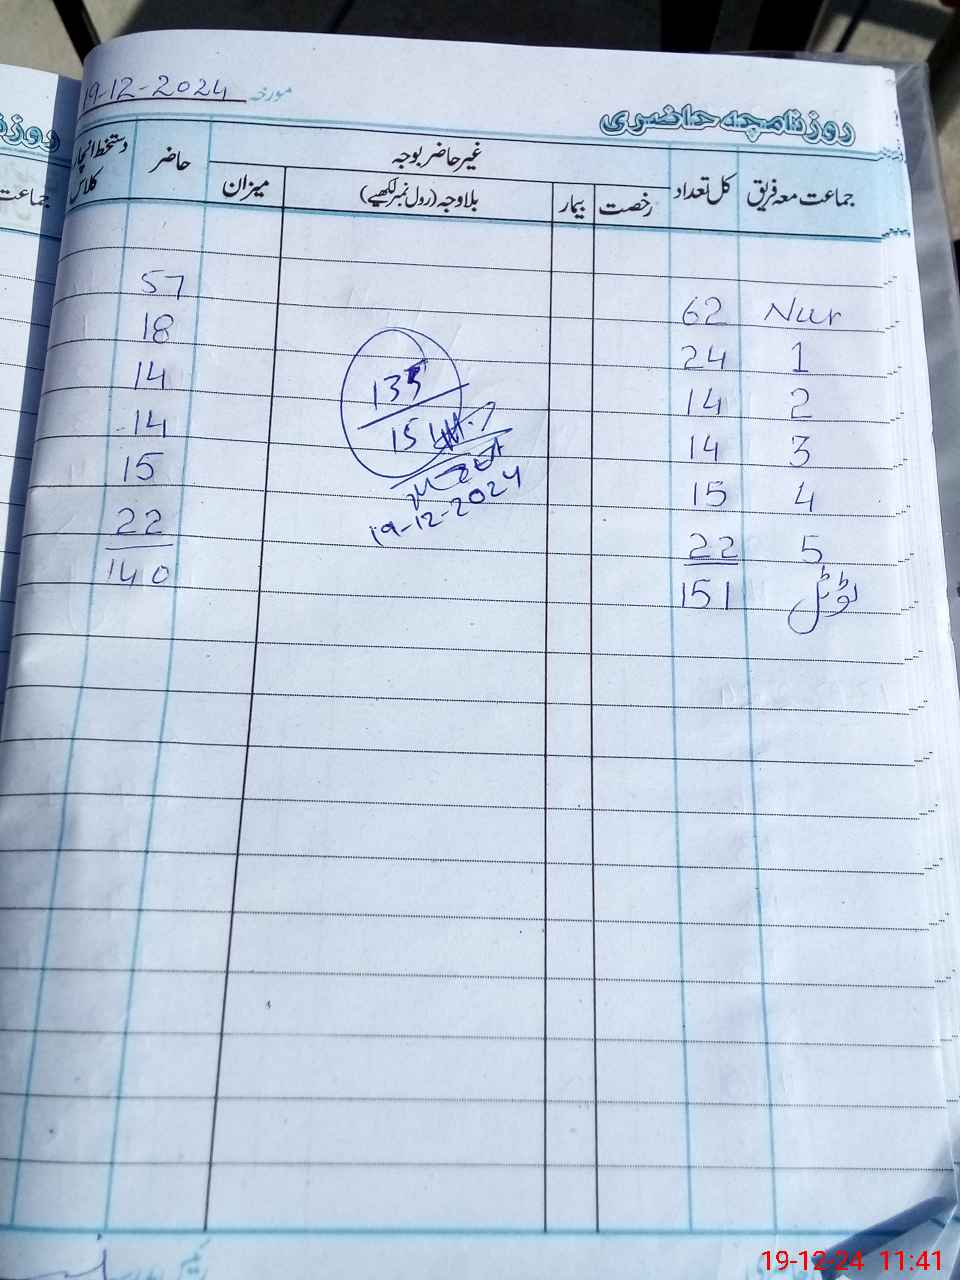 روزنامچہ حاضری
مورخہ 19-12-2024
جماعت معہ فریق کل تعداد غیر حاضر بوجہ حاضر دستخط انچارج کلاس
رخصت بیمار بلاوجہ (رول نمبر لکھیے) میزان
Nur 62 57
1 24 18
2 14 14
3 14 14
4 15 15
5 22 22
ٹوٹل 151 140
135
151
19-12-2024
روزنا
جماعت
19-12-24 11:41